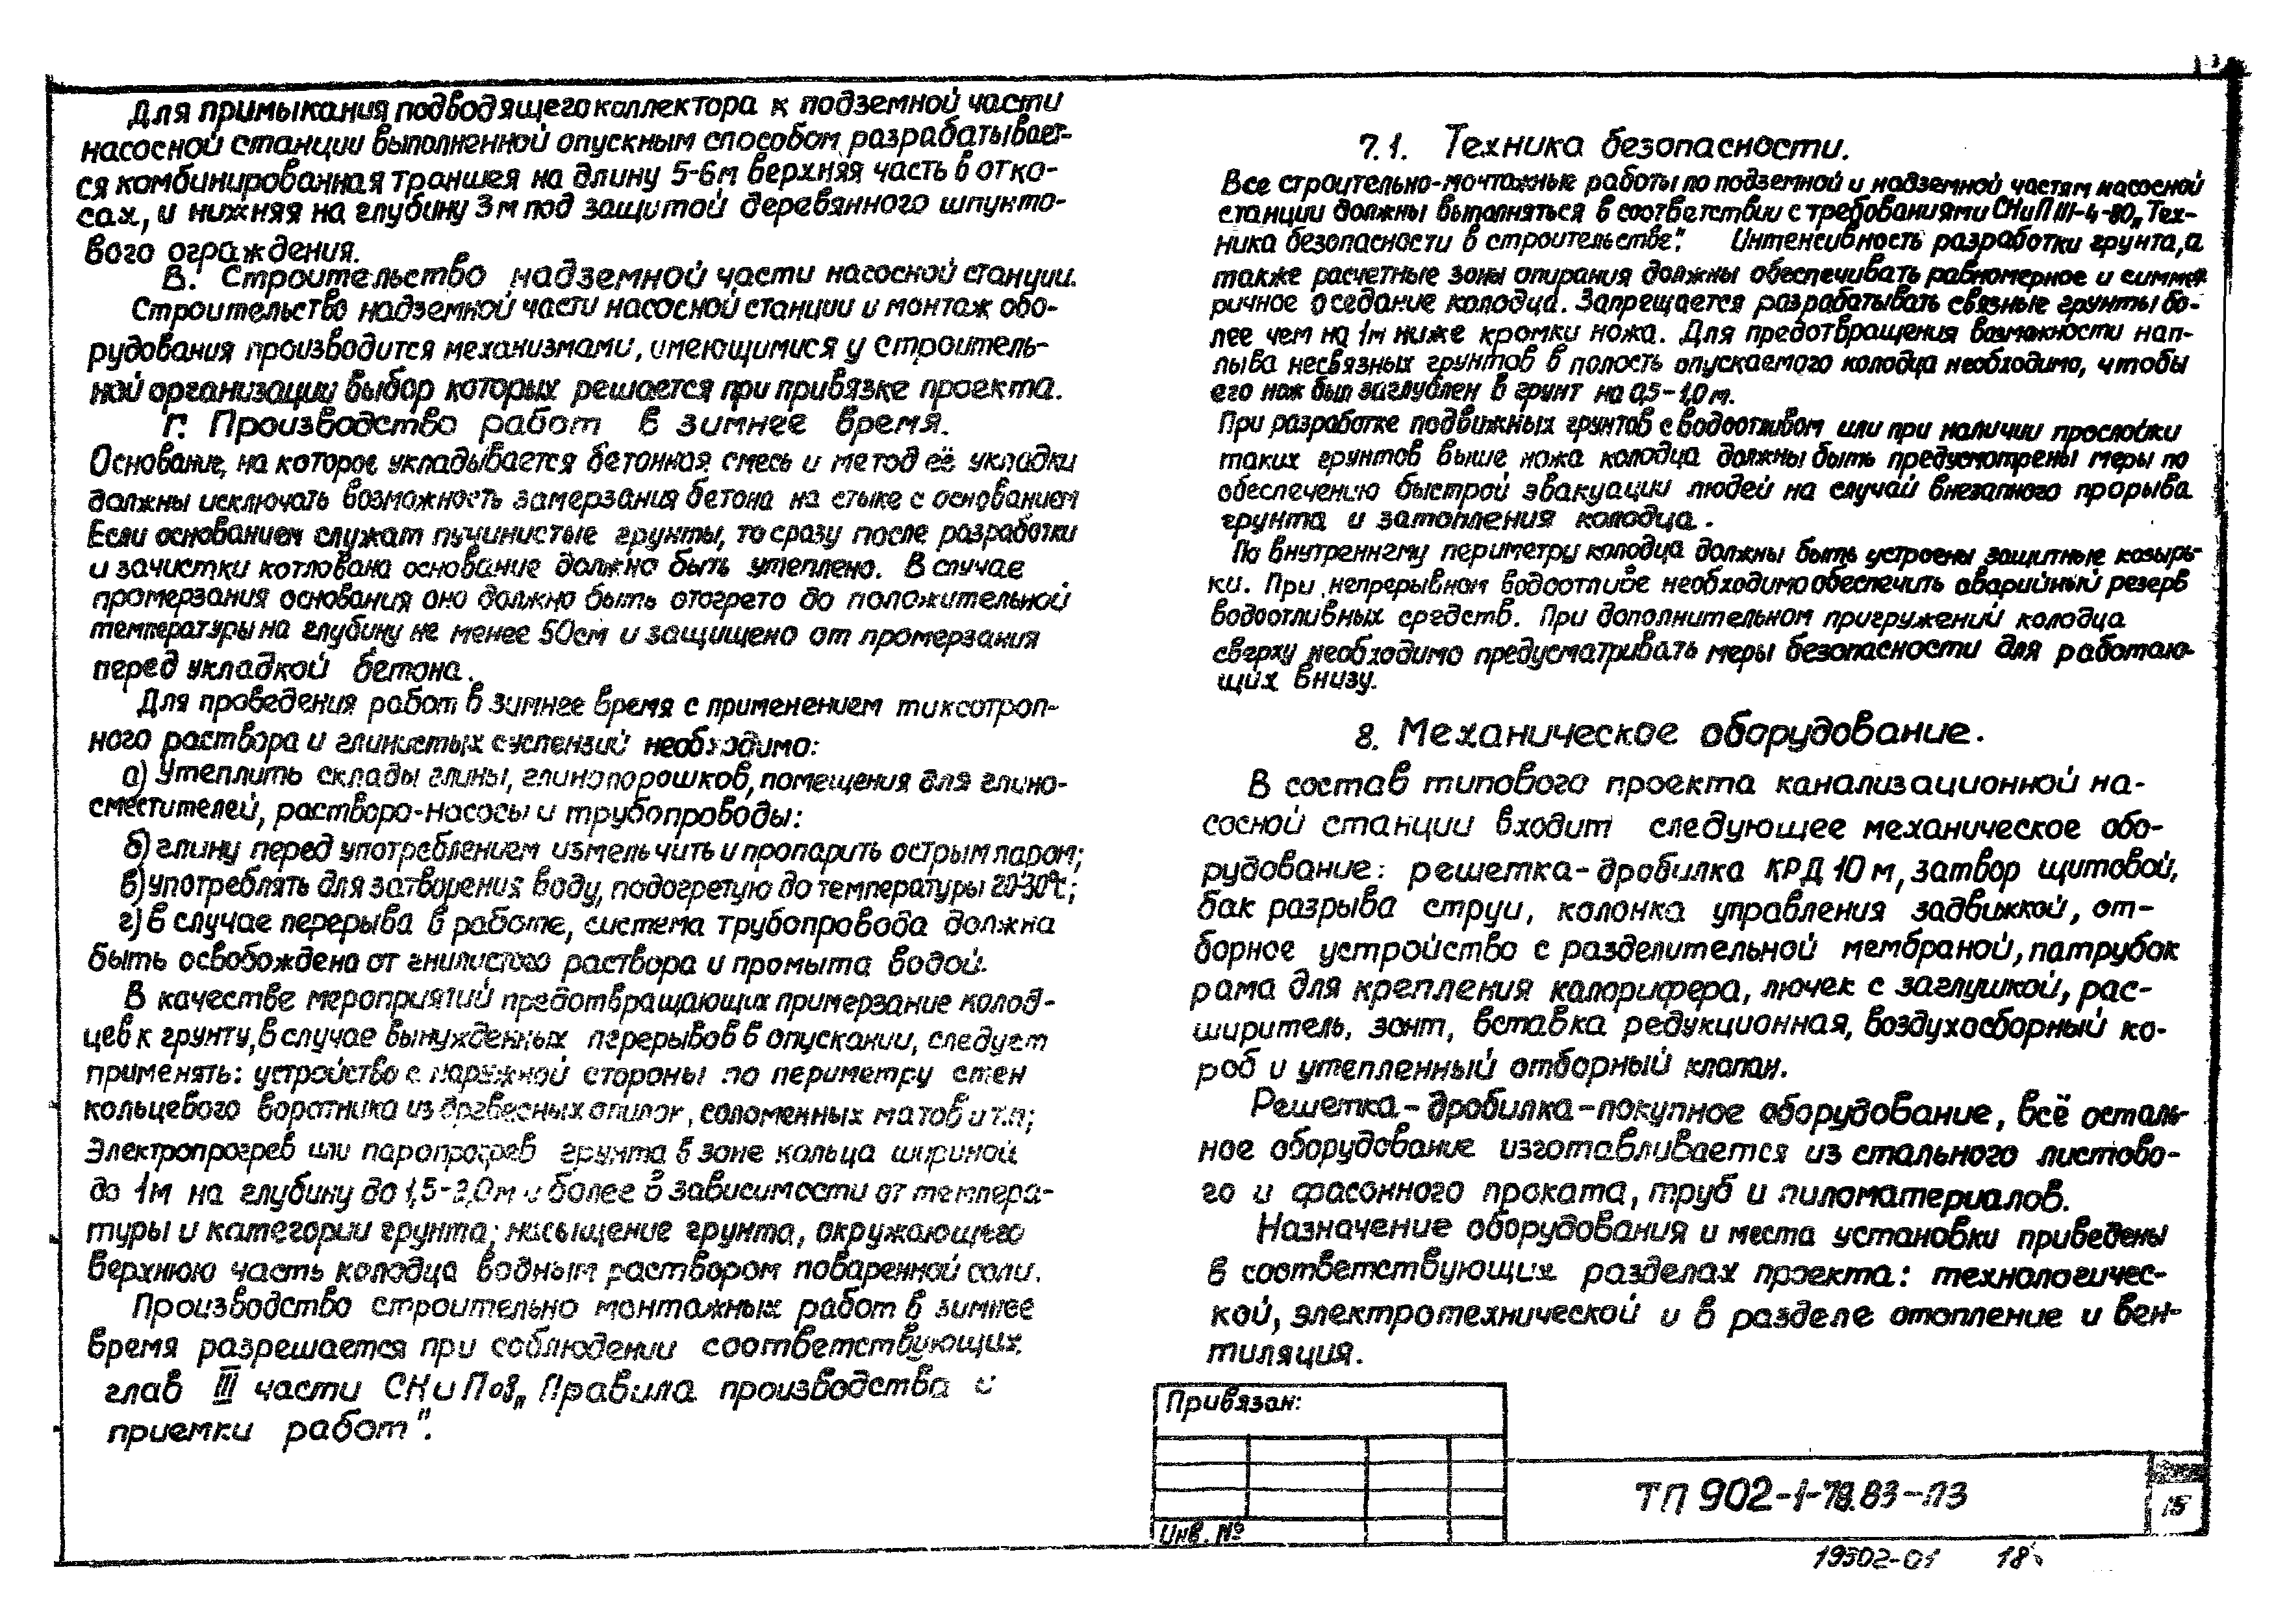 Для примыкания подводящего коллектора к подземной части
насосной станции выполненной опускным способом разрабатывает-
ся комбинированная траншея на длину 5-6м верхняя часть в отко-
сах, и нижняя на глубину 3м под защитой деревянного шпунто-
вого ограждения.
В. Строительство надземной части насосной станции.
Строительство надземной части насосной станции и монтаж обо-
рудования производится механизмами, имеющимися у строитель-
ной организации выбор которых решается при привязке проекта.
Г. Производство работ в зимнее время.
Основание, на которое укладывается бетонная смесь и метод её укладки
должны исключать возможность замерзания бетона на стыке с основанием
Если основанием служат пучинистые грунты, то сразу после разработки
и зачистки котлована основание должно быть утеплено. В случае
промерзания основания оно должно быть отогрето до положительной
температуры на глубину не менее 50см и защищено от промерзания
перед укладкой бетона.
Для проведения работ в зимнее время с применением тиксотроп-
ного раствора и глинистых суспензий необходимо:
а) Утеплить склады глины, глинопорошков, помещения для глино-
сместителей, растворо-насосы и трубопроводы:
б) глину перед употреблением измельчить и пропарить острым паром;
в) употреблять для затворения воду, подогретую до температуры 20-30°с;
г) в случае перерыва в работе, система трубопровода должна
быть освобождена от гнилистого раствора и промыта водой.
В качестве мероприятий предотвращающих примерзание колод-
цев к грунту, в случае вынужденных перерывов в опускании, следует
применять: устройство с наружной стороны по периметру стен
кольцевого воротника из древесных опилок, соломенных матов и т.п;
Электропрогрев или паропрогрев грунта в зоне кольца шириной
до 1м на глубину до 1,5-2,0м и более в зависимости от темпера-
туры и категории грунта; насыщение грунта, окружающего
верхнюю часть колодца водным раствором поваренной соли.
Производство строительно монтажных работ в зимнее
время разрешается при соблюдении соответствующих
глав III части СНиПов „Правила производства и
приемки работ".
7.1. Техника безопасности.
Все строительно-монтажные работы по подземной и надземной частям насосной
станции должны выполняться в соответствии с требованиями СНиП III-4-80 „Тех-
ника безопасности в строительстве". Интенсивность разработки грунта, а
также расчетные зоны опирания должны обеспечивать равномерное и симмет-
ричное оседание колодца. Запрещается разрабатывать связные грунты бо-
лее чем на 1м ниже кромки ножа. Для предотвращения возможности нап-
лыва несвязных грунтов в полость опускаемого колодца необходимо, чтобы
его нож был заглублен в грунт на 0,5-1,0 м.
При разработке подвижных грунтов с водоотливом или при наличии прослойки
таких грунтов выше ножа колодца должны быть предусмотрены меры по
обеспечению быстрой эвакуации людей на случай внезапного прорыва
грунта и затопления колодца.
По внутреннему периметру колодца должны быть устроены защитные козырь-
ки. При непрерывном водоотливе необходимо обеспечить аварийный резерв
водоотливных средств. При дополнительном пригружений колодца
сверху необходимо предусматривать меры безопасности для работаю-
щих внизу.
8. Механическое оборудование.
В состав типового проекта канализационной на-
сосной станции входит следующее механическое обо-
рудование: решетка-дробилка КРД 10 м, затвор щитовой,
бак разрыва струи, колонка управления задвижкой, от-
борное устройство с разделительной мембраной, патрубок
рама для крепления калорифера, лючек с заглушкой, рас-
ширитель, зонт, вставка редукционная, воздухосборный ко-
роб и утепленный отборный клапан.
Решетка-дробилка-покупное оборудование, всё осталь-
ное оборудование изготавливается из стального листово-
го и фасонного проката, труб и пиломатериалов.
Назначение оборудования и места установки приведены
в соответствующих разделах проекта: технологичес-
кой, электротехнической и в разделе отопление и вен-
тиляция.
Привязан:
Инв. №
ТП 902-1-79.83-ПЗ
15
19302-01 18